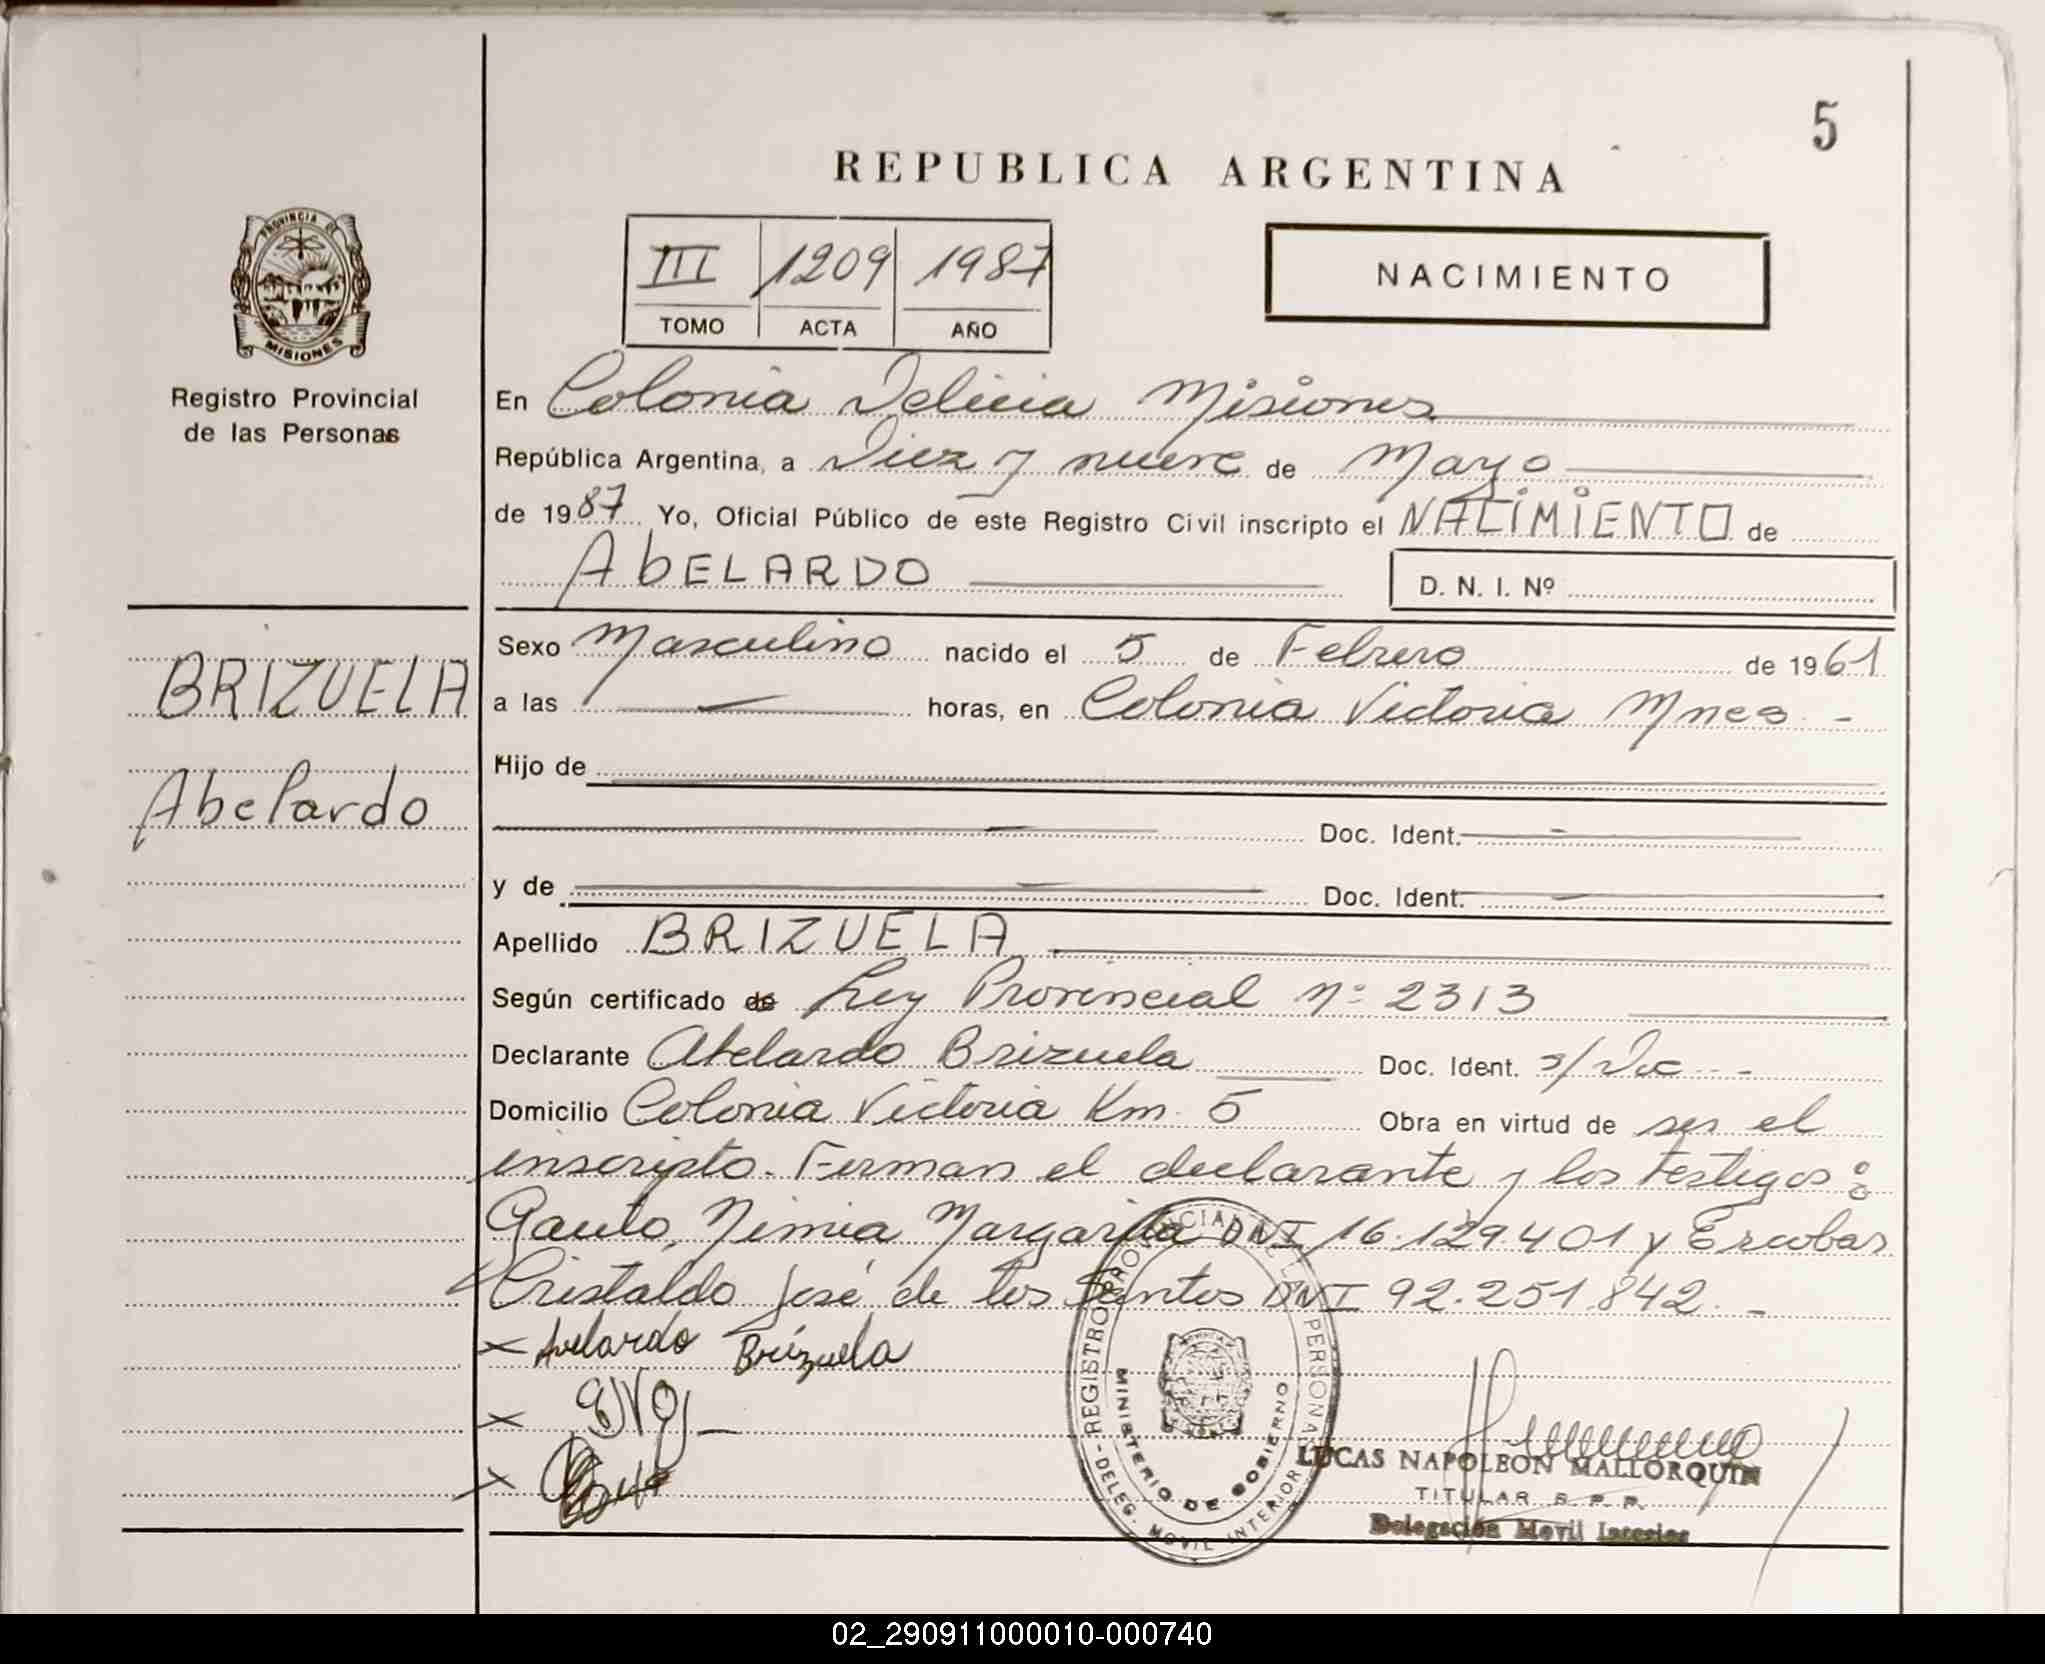 5
REPUBLICA ARGENTINA
PROVINCIA DE
MISIONES
Registro Provincial
de las Personas
III 1209 1987
TOMO ACTA AÑO
NACIMIENTO
En Colonia Delicia Misiones
República Argentina, a Diez y nueve de Mayo
de 1987 Yo, Oficial Público de este Registro Civil inscripto el NACIMIENTO de
AbELARDO D. N. I. Nº
BRIZUELA
Abelardo
Sexo Masculino nacido el 5 de Febrero de 1961
a las — horas, en Colonia Victoria Mnes -
Hijo de
Doc. Ident.
y de Doc. Ident.
Apellido BRIZUELA
Según certificado de Ley Provincial Nº 2313
Declarante Abelardo Brizuela Doc. Ident. s/Doc - -
Domicilio Colonia Victoria Km. 5 Obra en virtud de ser el
inscripto. Firman el declarante y los testigos:
Gauto, Nimia Margarita DNI 16.129.401 y Escobar
Cristaldo José de los Santos DNI 92.251.842. -
x Avelardo Brízuela
x
x
REGISTRO PROVINCIAL DE LAS PERSONAS
MINISTERIO DE GOBIERNO
DELEG. MOVIL INTERIOR
LUCAS NAPOLEON MALLORQUIN
TITULAR R. P. P.
Delegación Movil Interior
02_290911000010-000740